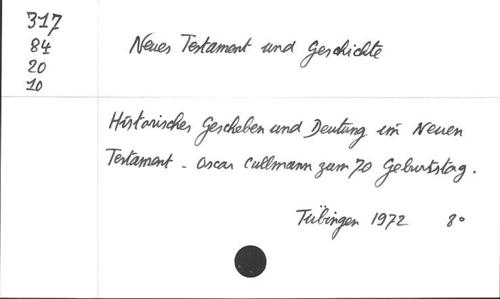 317
84
20
10
Neues Testament und Geschichte
Historisches Gescheben und Deutung im Neuen
Testament - Oscar Cullmann zum 70 Geburtstag.
Tübingen 1972 8°